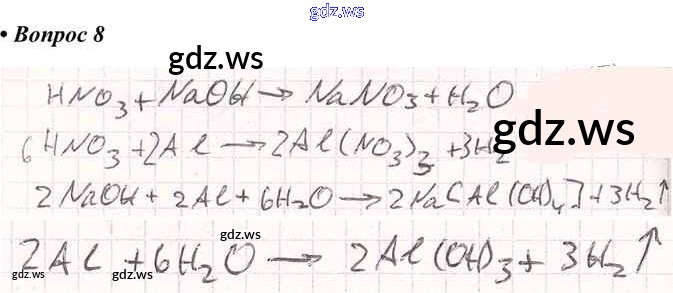 gdz.ws
• Вопрос 8
gdz.ws
HNO₃ + NaOH → NaNO₃ + H₂O
gdz.ws
6HNO₃ + 2Al → 2Al(NO₃)₃ + 3H₂
2NaOH + 2Al + 6H₂O → 2Na[Al(OH)₄] + 3H₂↑
gdz.ws
2Al + 6H₂O → 2Al(OH)₃ + 3H₂↑
gdz.ws gdz.ws gdz.ws